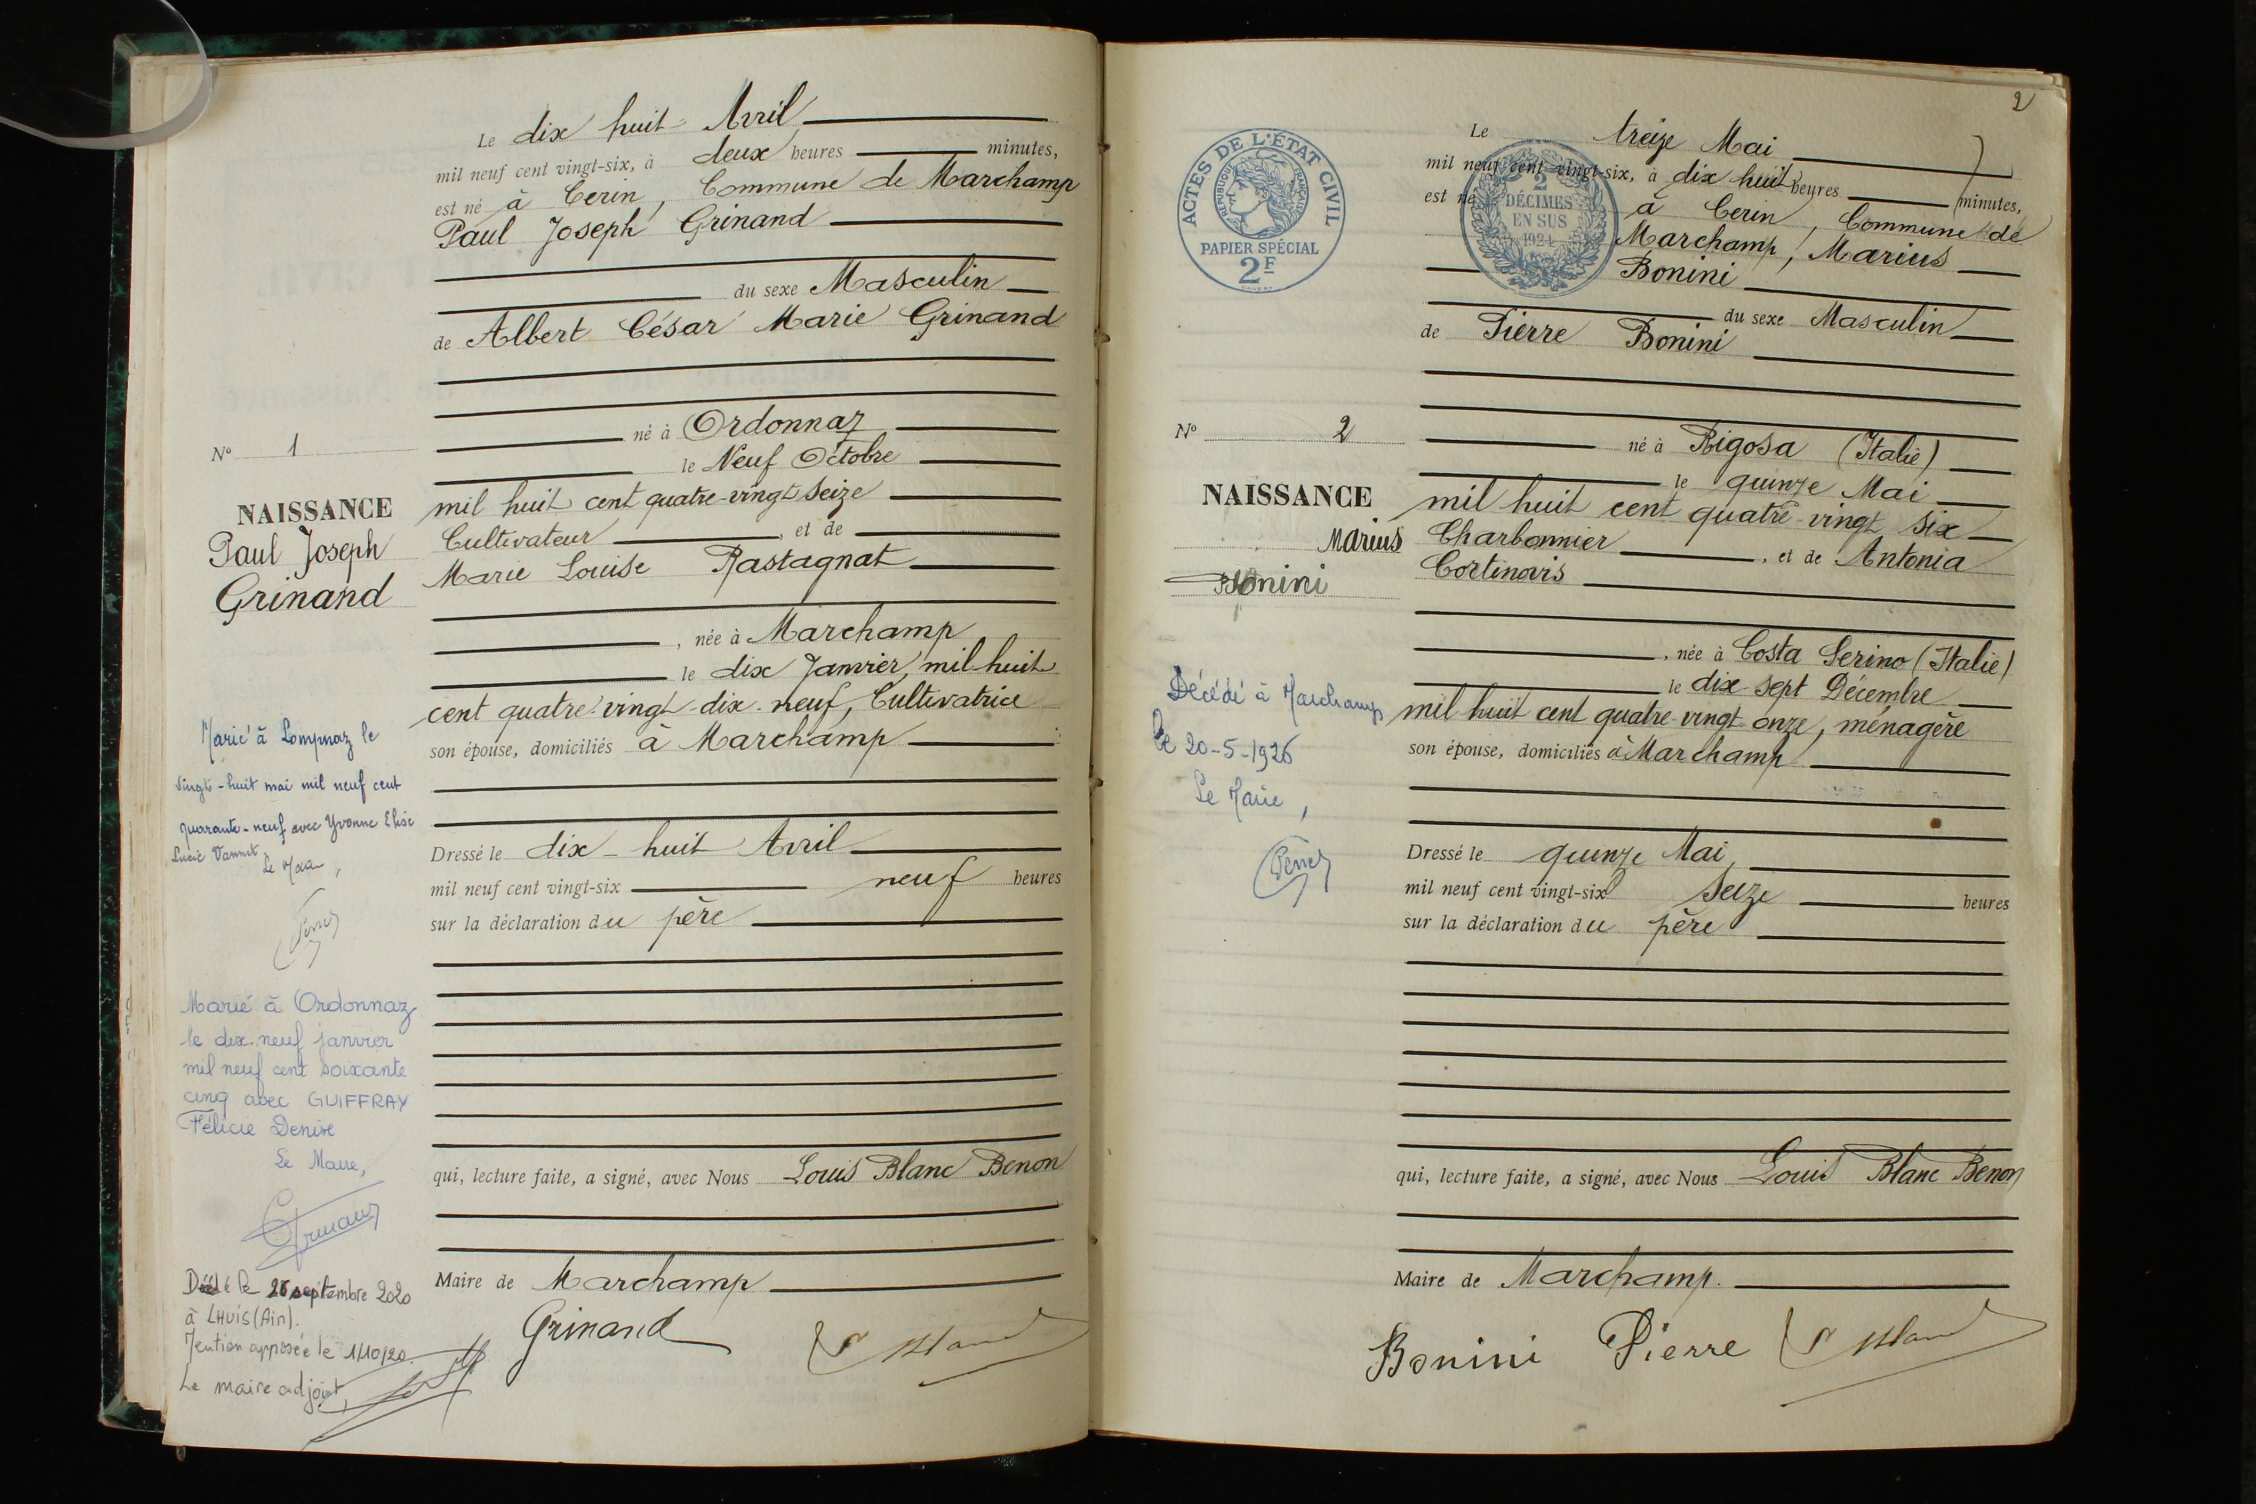 Le dix huit Avril
mil neuf cent vingt-six, à deux heures minutes,
est né à Cerin, Commune de Marchamp
Paul Joseph Grinand
du sexe Masculin
de Albert César Marie Grinand
né à Ordonnaz
le Neuf Octobre
mil huit cent quatre-vingt seize
Cultivateur, et de
Marie Louise Rastagnat
, née à Marchamp
le dix Janvier mil huit
cent quatre-vingt-dix-neuf, Cultivatrice
son épouse, domiciliés à Marchamp
Dressé le dix-huit Avril
mil neuf cent vingt-six neuf heures
sur la déclaration du père
qui, lecture faite, a signé, avec Nous Louis Blanc Benon
Maire de Marchamp
Grinand
Blanc
N° 1
NAISSANCE
Paul Joseph
Grinand
Marié à Lompnaz le
vingt-huit mai mil neuf cent
quarante-neuf avec Yvonne Elise
Lucie
Le Maire,
Marié à Ordonnaz
le dix-neuf janvier
mil neuf cent soixante
cinq avec GUIFFRAY
Félicie Denise
Le Maire,
Décédé le septembre 2020
à LHUIS (Ain).
Mention apposée le 1/10/20.
Le maire adjoint,
2
ACTES DE L'ÉTAT CIVIL
RÉPUBLIQUE FRANÇAISE
PAPIER SPÉCIAL
2F
2
DÉCIMES
EN SUS
1924
Le treize Mai
mil neuf cent vingt-six, à dix huit heures minutes,
est né à Cerin, Commune de
Marchamp, Marius
Bonini
du sexe Masculin
de Pierre Bonini
né à Rigosa (Italie)
le quinze Mai
mil huit cent quatre-vingt six
Charbonnier, et de Antonia
Cortinovis
, née à Costa Serino (Italie)
le dix-sept Décembre
mil huit cent quatre-vingt-onze, ménagère
son épouse, domiciliés à Marchamp
Dressé le quinze Mai,
mil neuf cent vingt-six seize heures
sur la déclaration du père
qui, lecture faite, a signé, avec Nous Louis Blanc Benon
Maire de Marchamp.
Bonini Pierre
Blanc
N° 2
NAISSANCE
Marius
Bonini
Décédé à Marchamp
le 20-5-1926
Le Maire,